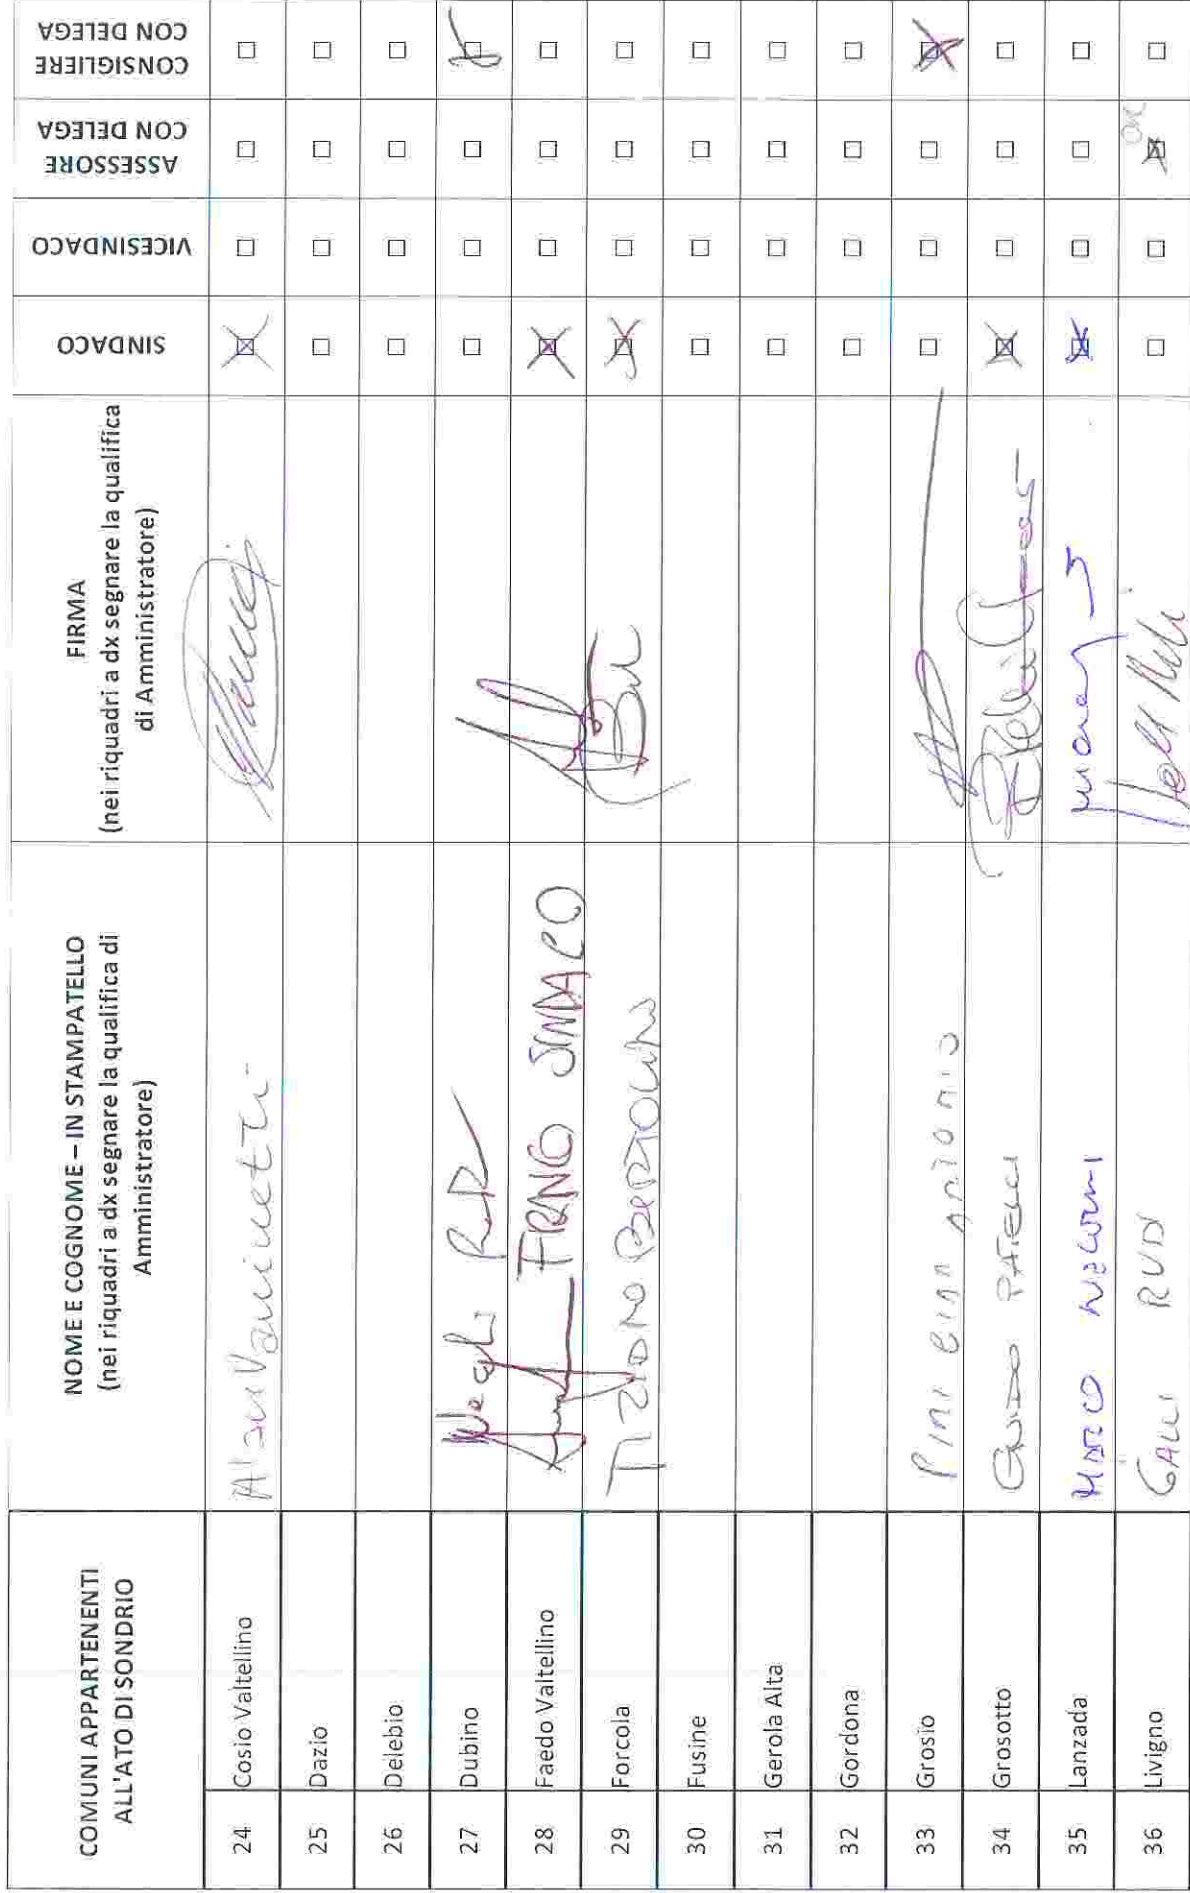 COMUNI APPARTENENTI
ALL'ATO DI SONDRIO
NOME E COGNOME – IN STAMPATELLO
(nei riquadri a dx segnare la qualifica di
Amministratore)
FIRMA
(nei riquadri a dx segnare la qualifica
di Amministratore)
SINDACO
VICESINDACO
ASSESSORE
CON DELEGA
CONSIGLIERE
CON DELEGA
24 Cosio Valtellino Vaninetti
25 Dazio
26 Delebio
27 Dubino
28 Faedo Valtellino FRANCO SINDACO
29 Forcola TIZIANO BERTOLINI
30 Fusine
31 Gerola Alta
32 Gordona
33 Grosio PINI GIAN ANTONIO
34 Grosotto GUIDO PATELLI
35 Lanzada MARCO NEGRINI
36 Livigno GALLI RUDI